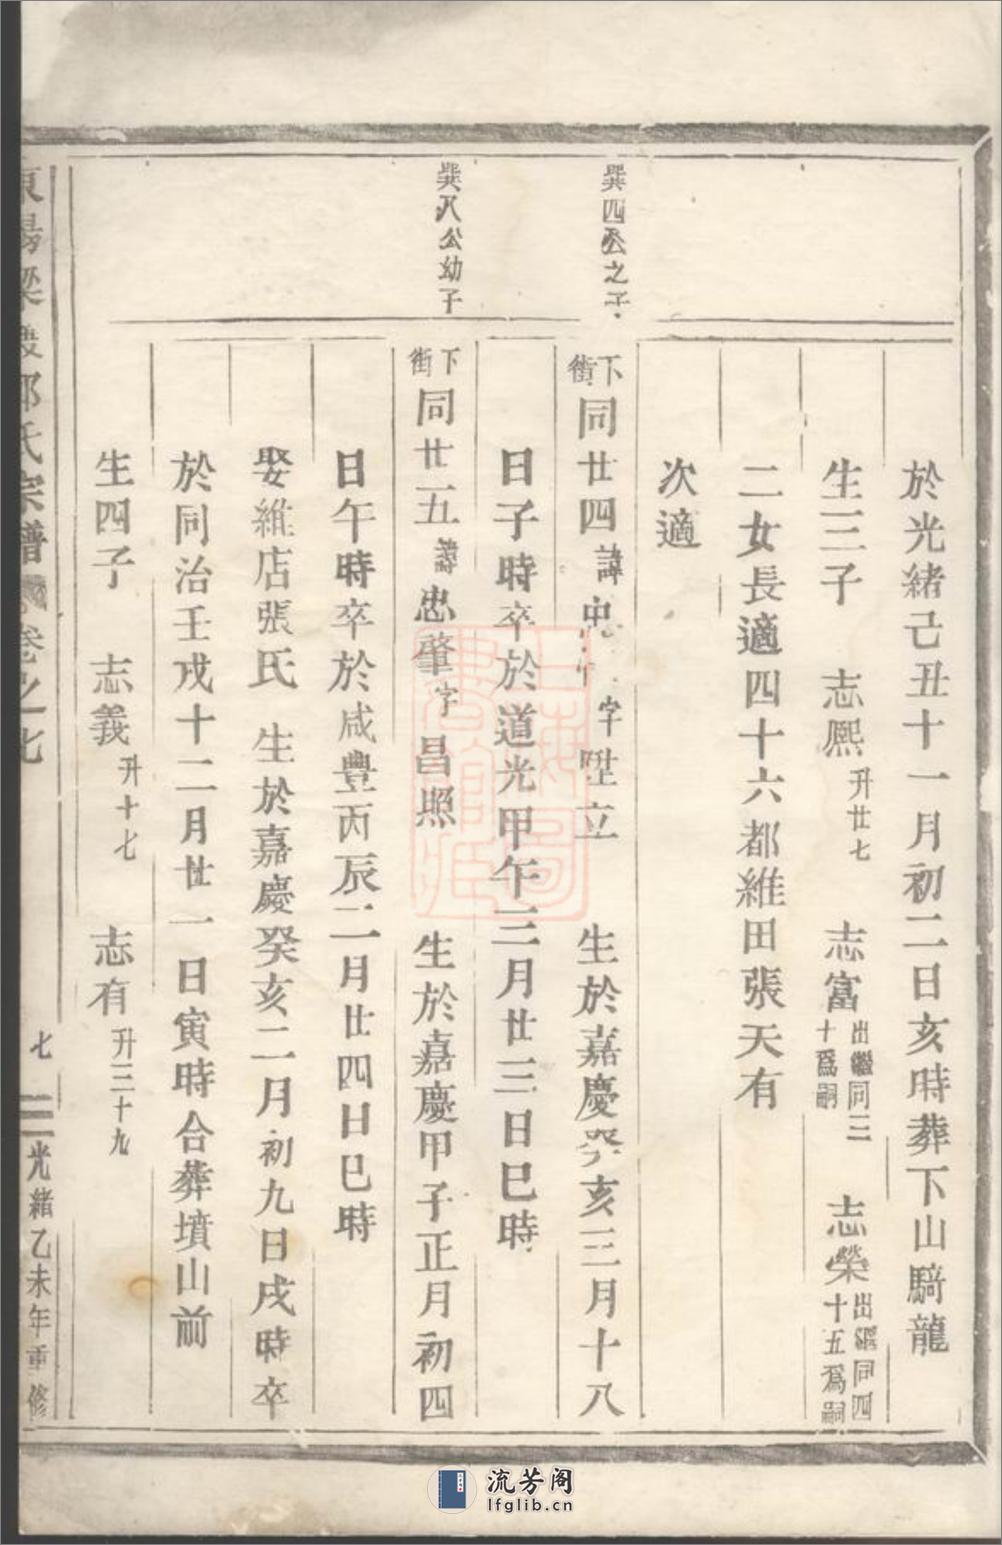 於光緒己丑十一月初二日亥時葬下山騎龍
生三子　志熙升廿七　志富出繼同三十爲嗣　志榮出繼同四十五爲嗣
二女長適四十六都維田張天有
次適
巽四公之子
下街同廿四諱忠　字陞立　生於嘉慶癸亥三月十八
日子時卒於道光甲午三月廿三日巳時
巽八公幼子
下街同廿五諱忠肇字昌照　生於嘉慶甲子正月初四
日午時卒於咸豐丙辰二月廿四日巳時
娶維店張氏　生於嘉慶癸亥二月初九日戌時卒
於同治壬戌十二月廿一日寅時合葬墳山前
生四子　志義升十七　志有升三十九
東陽梁渡邵氏宗譜　卷之七　七　光緒乙未年重修
流芳阁
lfglib.cn